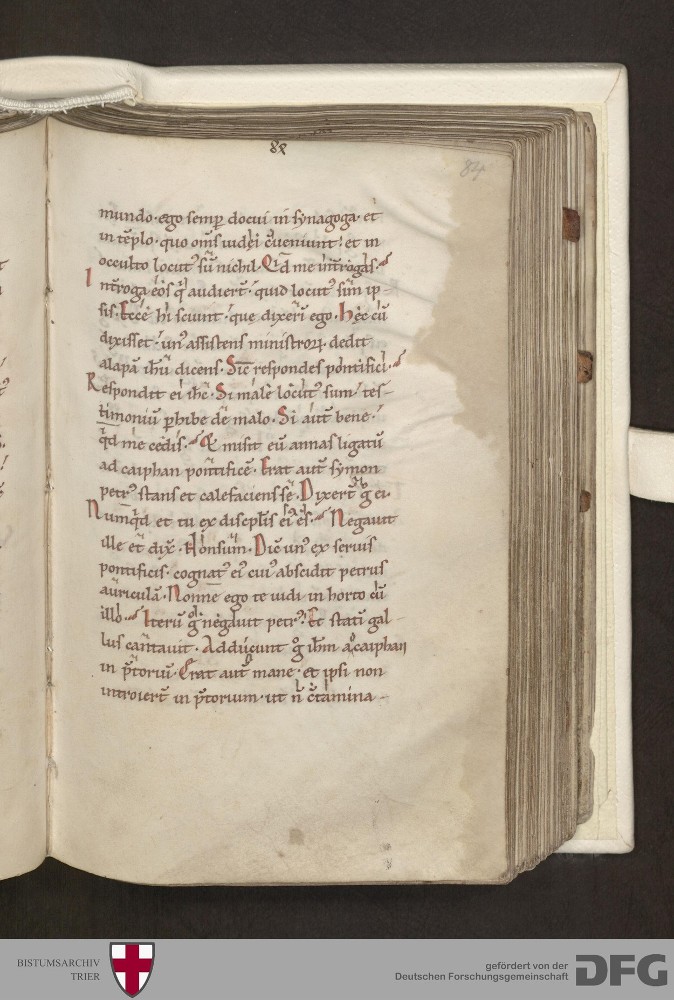 84
84
mundo· ego semp̱ docui in synagoga· et
in tēplo· quo om̄s iudęi c̄ueniunt! et in
occulto locut᾿ sū nichil· Qd̄ me int̄rogas·
Int̄roga eos q̄ audiert̄· quid locut᾿ sim ip-
sis· Ecce hi sciunt· que dixerī ego· Hęc cū
dixisset· un᾿ assistens ministroꝝ· dedit
alapā ihū dicens· Sic̄ respondes pontifici·
Respondit ei ihc̄· Si male locut᾿ sum· tes-
timoniū ꝑhibe de malo· Si aut̄ bene·
qd̄ me cedis· Et misit eū annas ligatū
ad caiphan pontificē· Erat aut̄ symon
petr᾿ stans et calefaciens sē· Dixert̄ g̊ ei·
Numqd̄ et tu ex discipl̄is ei᾿ es· Negauit
ille et dix̄· Non sum· Dic̄ un᾿ ex seruis
pontificis· cognat᾿ ei᾿ cui᾿ abscidit petrus
auriculā· Nonne ego te uidi in horto cū
illo· Iterū g̊ negauit petr᾿· Et statī gal
lus cantauit· Adducunt g̊ ihm̄ a caiphan
in p̄toriū· Erat aut̄ mane· et ipsi non
introiert̄ in p̄torium· ut n̄ c̄tamina-
BISTUMSARCHIV
TRIER
gefördert von der
Deutschen Forschungsgemeinschaft
DFG